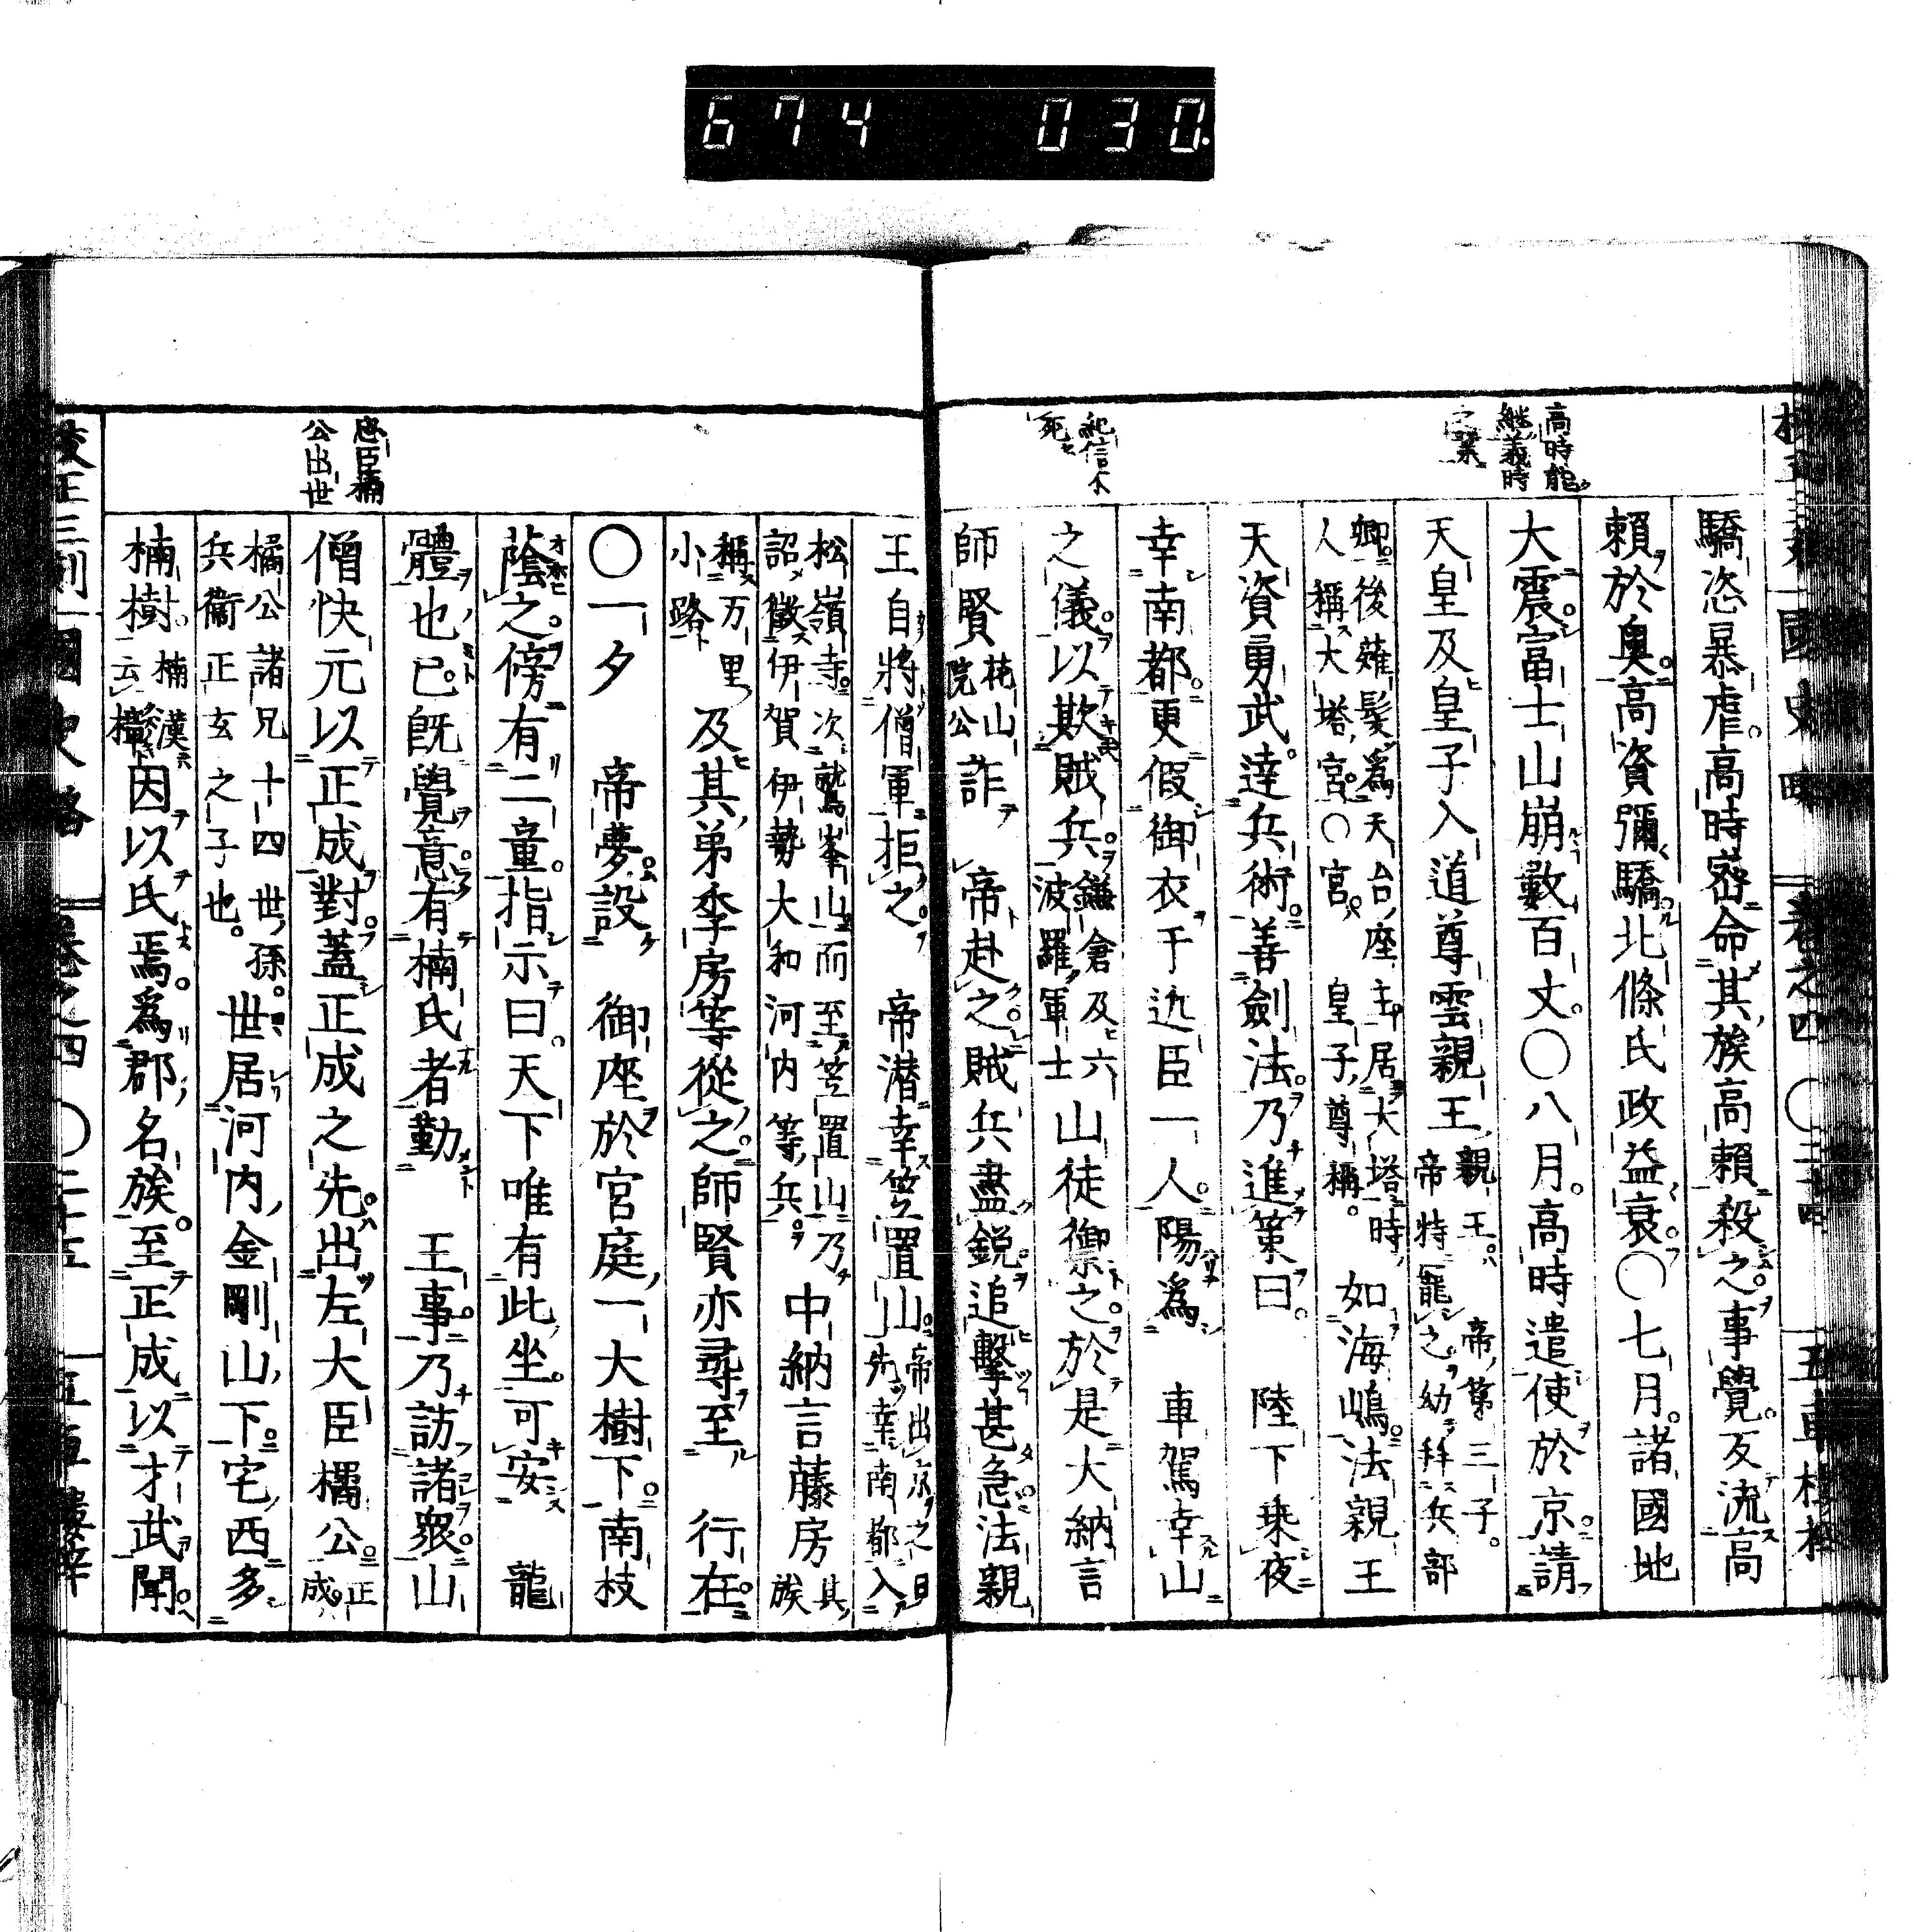 674 030.
高時能
繼義時
之業
紀信不
死
驕恣暴虐高時密命其族高賴殺之事覺反流高
賴於奧高資彌驕北條氏政益衰〇七月諸國地
大震富士山崩數百丈〇八月高時遣使於京請
天皇及皇子入道尊雲親王親王帝第三子
帝特寵之幼拜兵部
卿後薙髮爲天台座主居大塔時
人稱大塔宮〇宮皇子尊稱如海嶋法親王
天資勇武達兵術善劍法乃進策曰 陸下乗夜
幸南都更假御衣于近臣一人陽爲 車駕幸山
之儀以欺賊兵鎌倉及六
波羅軍士山徒禦之於是大納言
師賢花山
院公詐 帝赴之賊兵盡銳追擊甚急法親
忠臣楠
公出世
王自將僧軍拒之 帝潜幸笠置山帝出京之日
先幸南都入
松嶺寺次就鷲峯山而至笠置山乃
詔徵伊賀伊勢大和河内等兵中納言藤房其
族
稱万里
小路及其弟季房等從之師賢亦尋至 行在
〇一夕 帝夢設 御座於宮庭一大樹下南枝
蔭之傍有二童指示曰天下唯有此坐可安 龍
體也已既覺意有楠氏者勤 王事乃訪諸衆山
僧快元以正成對蓋正成之先出左大臣橘公正
成
橘公諸兄十四世孫
兵衞正玄之子也世居河内金剛山下宅西多
楠樹楠漢
云樟因以氏焉爲郡名族至正成以才武聞